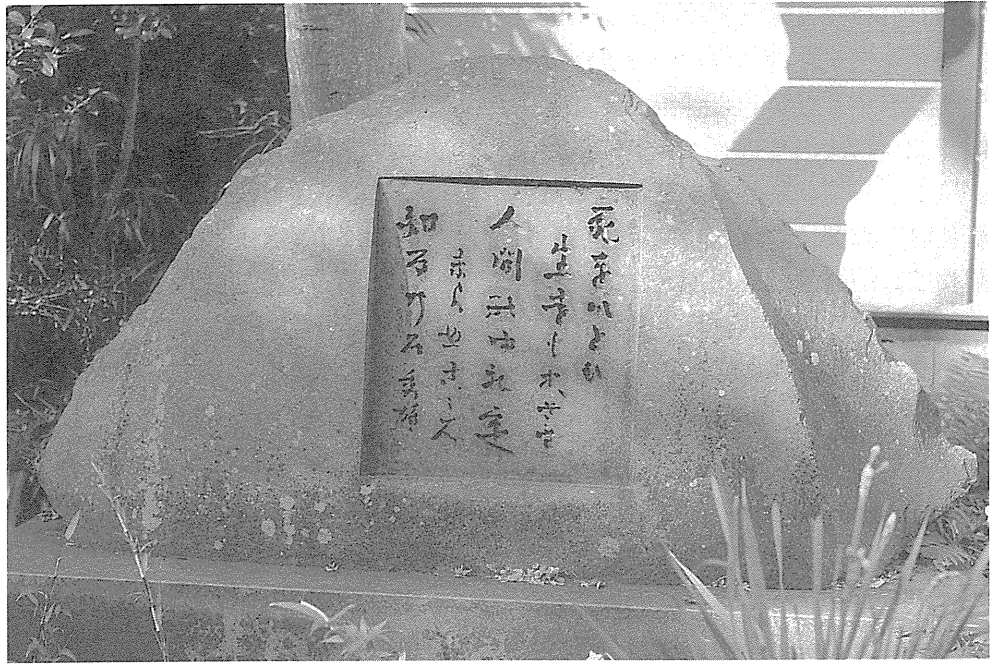 死をいとひ
生をもおそれ
人間のゆれ定
まらぬこゝろ
知るのみ 秀雄